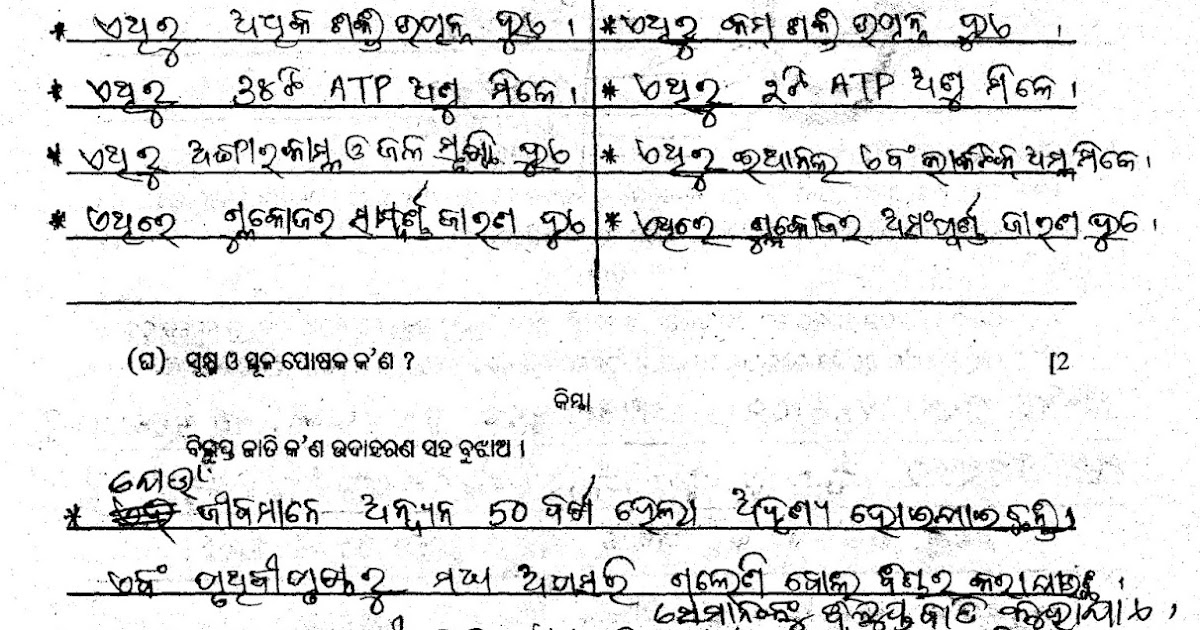 * ଏଥିରୁ ଅଧିକ ଶକ୍ତି ଉତ୍ପନ୍ନ ହୁଏ । * ଏଥିରୁ କମ୍ ଶକ୍ତି ଉତ୍ପନ୍ନ ହୁଏ ।
* ଏଥିରୁ ୩୪ଟି ATP ଅଣୁ ମିଳେ । * ଏଥିରୁ ୨ଟି ATP ଅଣୁ ମିଳେ ।
* ଏଥିରୁ ଅଙ୍ଗାରକାମ୍ଳ ଓ ଜଳ ସୃଷ୍ଟି ହୁଏ * ଏଥିରୁ ଇଥାନଲ ଏବଂ ଲାକଟିକ୍ ଅମ୍ଳ ମିଳେ ।
* ଏଥିରେ ଗ୍ଲୁକୋଜର ସମ୍ପୂର୍ଣ୍ଣ ଜାରଣ ହୁଏ * ଏଥିରେ ଗ୍ଲୁକୋଜର ଅସଂପୂର୍ଣ୍ଣ ଜାରଣ ହୁଏ ।
(ଘ) ସୂକ୍ଷ୍ମ ଓ ସ୍ଥୂଳ ପୋଷକ କ'ଣ ? [2
କିମ୍ବା
ବିଲୁପ୍ତ ଜାତି କ'ଣ ଉଦାହରଣ ସହ ବୁଝାଅ ।
ଯେଉଁ
* ଜୀବମାନେ ଅନ୍ୟୂନ 50 ବର୍ଷ ହେଲା ଅଦୃଶ୍ୟ ହୋଇଯାଇଛନ୍ତି ।
ଏବଂ ପୃଥିବୀପୃଷ୍ଠରୁ ଅପସରି ଗଲେଣି ବୋଲି ବିଚାର କରାଯାଉଛି ।
ସେମାନଙ୍କୁ ବିଲୁପ୍ତ ଜାତି କୁହାଯାଏ ।